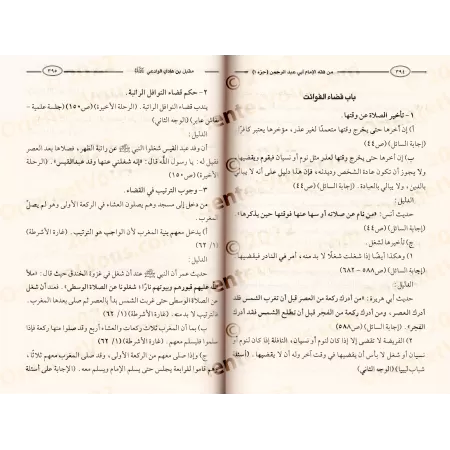 من فقه الإمام أبي عبد الرحمن (جزء ١)
٣٩٤
باب قضاء الفوائت
١- تأخير الصلاة عن وقتها.
أ) إن أخرها حتى يخرج وقتها متعمدًا لغير عذر، مؤخرها يعتبر كافرًا.
(إجابة السائل) (ص٤٤)
ب) إن أخرها حتى يخرج وقتها لعذر مثل نوم أو نسيان فيقوم ويقضيها
ولا يجوز أن تكون عادة الشخص وديدنه، فإن هذا دليل على أنه لا يبالي
بالدين، ولا يبالي بالعبادة. (إجابة السائل) (ص٤٤)
الدليل:
حديث أنس: «من نام عن صلاته أو سها عنها فوقتها حين يذكرها»
(إجابة السائل) (ص٤٤)
ج) تأخيرها لشغل.
١) وهكذا أيضًا إذا شغلت شغلًا لا بد منه، أمر في النادر فيقضيها
(إجابة السائل) (ص٥٨٨ - ٦٨٢)
الدليل:
حديث أبي هريرة: «من أدرك ركعة من العصر قبل أن تغرب الشمس فقد
أدرك العصر، ومن أدرك ركعة من الفجر قبل أن تطلع الشمس فقد أدرك
الفجر». (إجابة السائل) (ص٥٨٨)
٢) الفريضة لا تقضى إلا إذا كان لنوم أو نسيان، النافلة إذا كان لنوم أو
نسيان أو شغل لا بأس أن يقضيها في وقت آخر وله أن لا يقضيها. (أسئلة
شباب ليبيا) (الوجه الثاني)
مقبل بن هادي الوادعي
٣٩٥
٢- حكم قضاء النوافل الراتبة.
يندب قضاء النوافل الراتبة. (الرحلة الأخيرة) (ص١٥٠) (جلسة علمية -
عابر) (الوجه الثاني)
الدليل:
أن وفد عبد القيس شغلوا النبي ﷺ عن راتبة الظهر، فصلاها بعد العصر
فقيل له: يا رسول الله قال: «إنه شغلني عنها وفد عبدالقيس». (الرحلة
الأخيرة) (ص١٥٠)
٣- وجوب الترتيب في القضاء.
من دخل إلى مسجد وهم يصلون العشاء في الركعة الأولى وهو لم يصلِّ
المغرب.
أ) يدخل معهم بنية المغرب لأن الواجب هو الترتيب. (غارة الأشرطة)
(١/ ٦٢)
الدليل:
حديث عمر أن النبي ﷺ عند أن شغل في غزوة الخندق حيث قال: «ملأ
عليهم قبورهم وبيوتهم نارًا؛ شغلونا عن الصلاة الوسطى». فعند أن شغل
عن الصلاة الوسطى حتى غربت الشمس بدأ بالعصر ثم صلى بعدها المغرب.
فالترتيب لا بد منه. (غارة الأشرطة) (١/ ٦٢)
ب) بما أن المغرب ثلاث ركعات والعشاء أربع وقد صلوا منها ركعة فإذا
سلموا فليسلم معهم. (غارة الأشرطة) (١/ ٦٢)
ج) وإذا صلى معهم من الركعة الأولى، وقد صلى المغرب معهم ثلاثًا،
قاموا للرابعة يجلس حتى يسلم الإمام ويسلم معه. (الإجابة على أسئلة